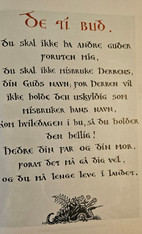 De ti bud.
Du skal ikke ha andre guder
foruten mig.
Du skal ikke misbruke Herrens,
din Guds navn; for Herren vil
ikke holde den uskyldig som
misbruker hans navn.
Kom hviledagen i hu, så du holder
den hellig!
Hedre din far og din mor,
forat det må gå dig vel,
og du må lenge leve i landet,